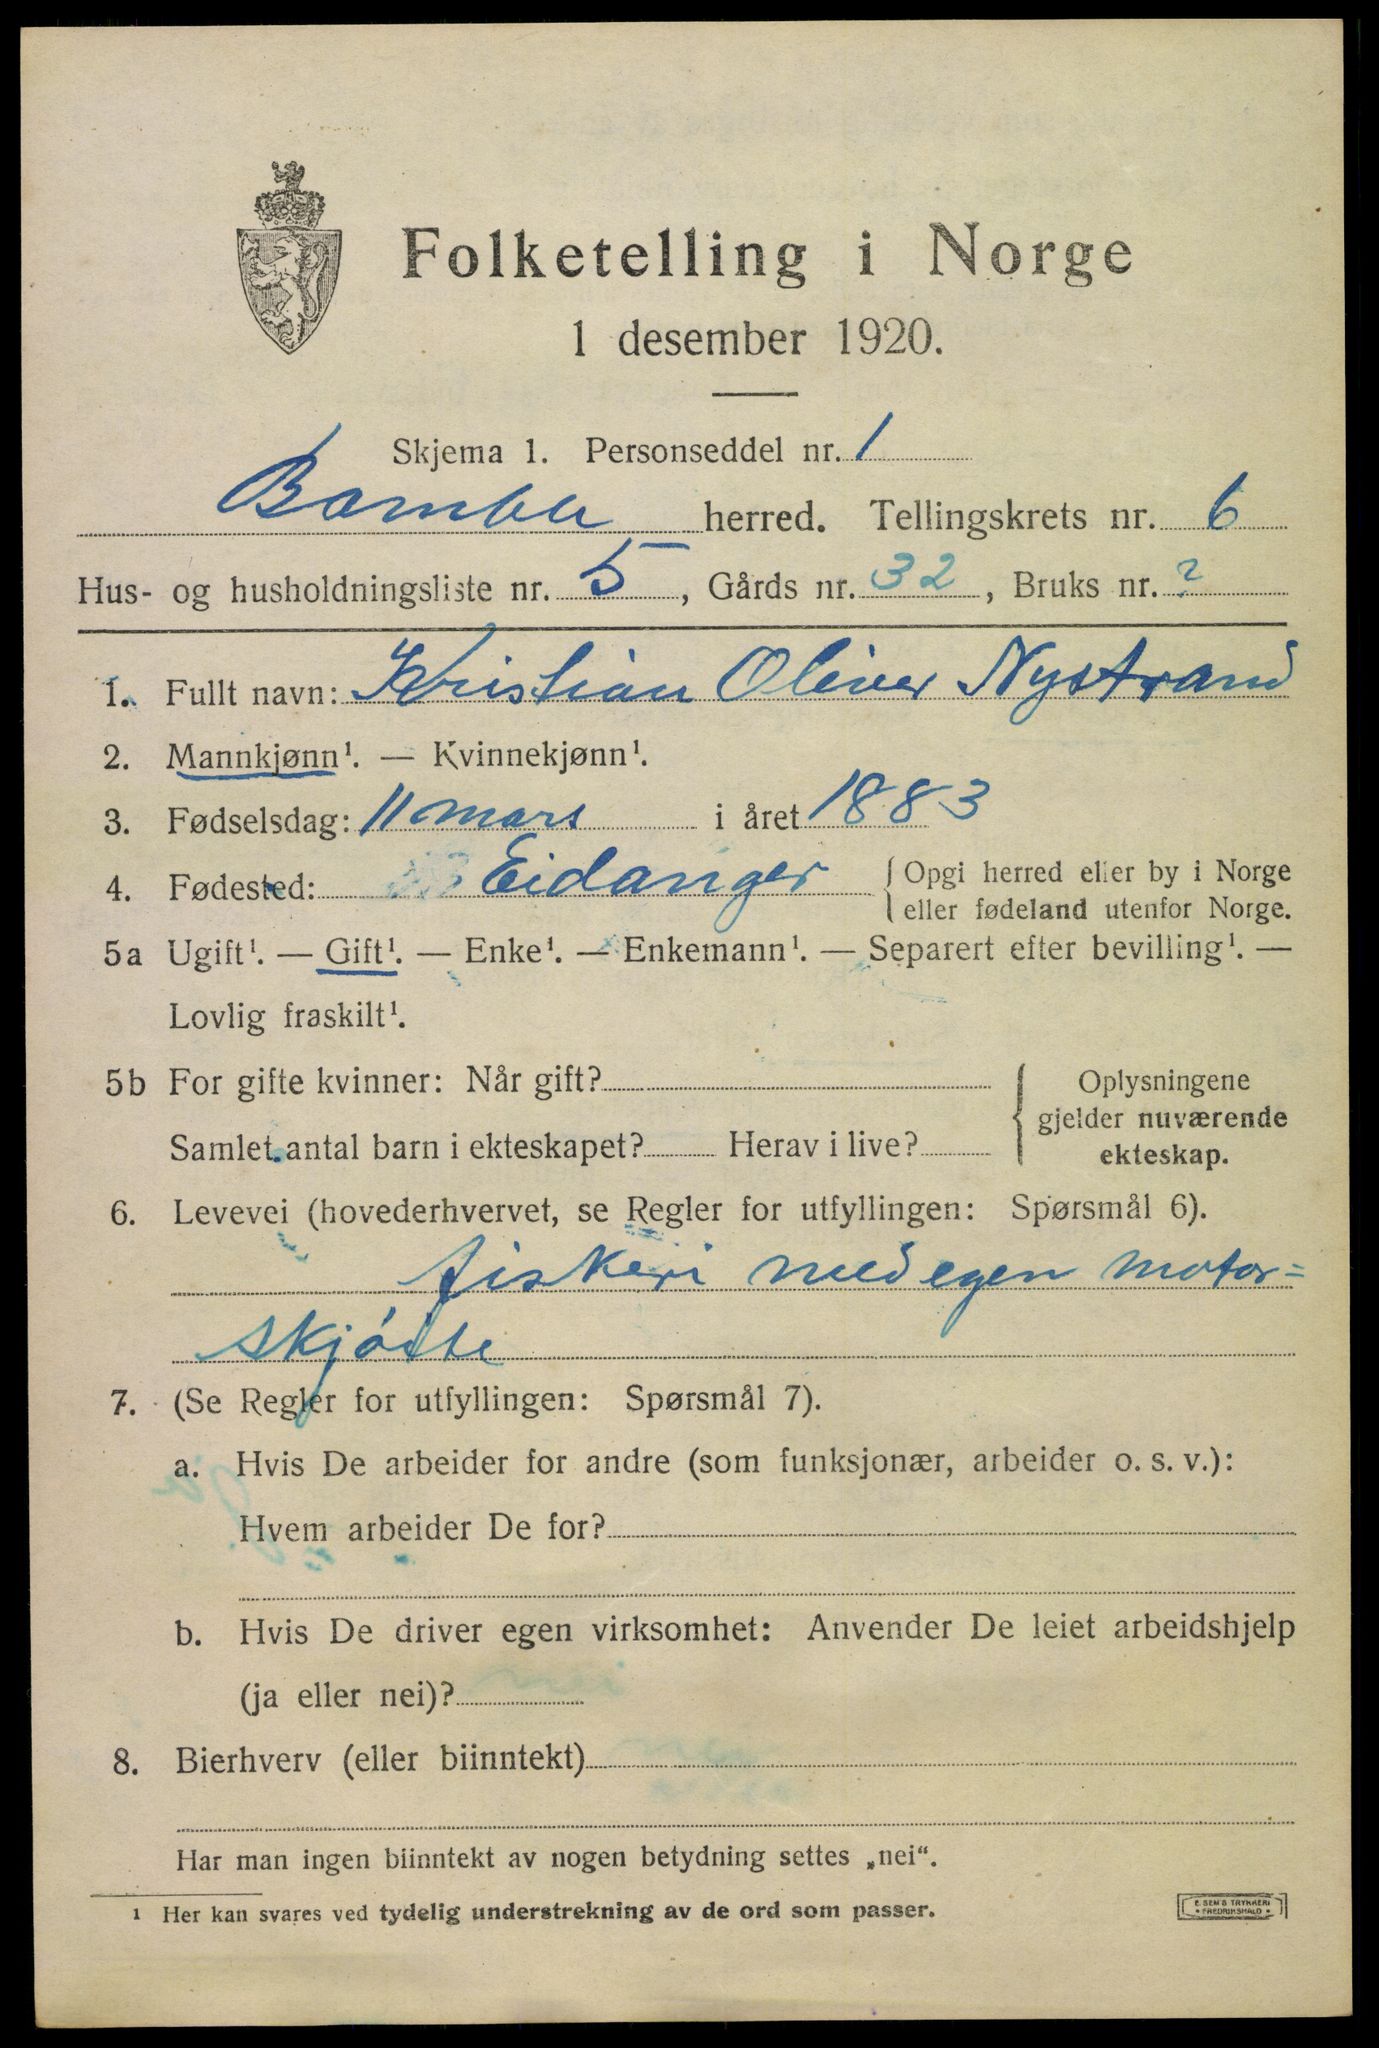 Folketelling i Norge
1 desember 1920.
Skjema 1. Personseddel nr. 1
Bamble herred. Tellingskrets nr. 6
Hus- og husholdningsliste nr. 5, Gårds nr. 32, Bruks nr. ?
1. Fullt navn: Kristian Oliver Nystrand
2. Mannkjønn¹. — Kvinnekjønn¹.
3. Fødselsdag: 11 mars i året 1883
4. Fødested: Eidanger {Opgi herred eller by i Norge
eller fødeland utenfor Norge.
5a Ugift¹. — Gift¹. — Enke¹. — Enkemann¹. — Separert efter bevilling¹. —
Lovlig fraskilt¹.
5b For gifte kvinner: Når gift?
Samlet antal barn i ekteskapet? Herav i live?
Oplysningene
gjelder nuværende
ekteskap.
6. Levevei (hovederhvervet, se Regler for utfyllingen: Spørsmål 6).
fiskeri med egen motor=
skjöite
7. (Se Regler for utfyllingen: Spørsmål 7).
a. Hvis De arbeider for andre (som funksjonær, arbeider o. s. v.):
Hvem arbeider De for?
b. Hvis De driver egen virksomhet: Anvender De leiet arbeidshjelp
(ja eller nei)?
8. Bierhverv (eller biinntekt)
Har man ingen biinntekt av nogen betydning settes „nei“.
¹ Her kan svares ved tydelig understrekning av de ord som passer.
E. SEM'S TRYKKERI
• FREDRIKSHALD •